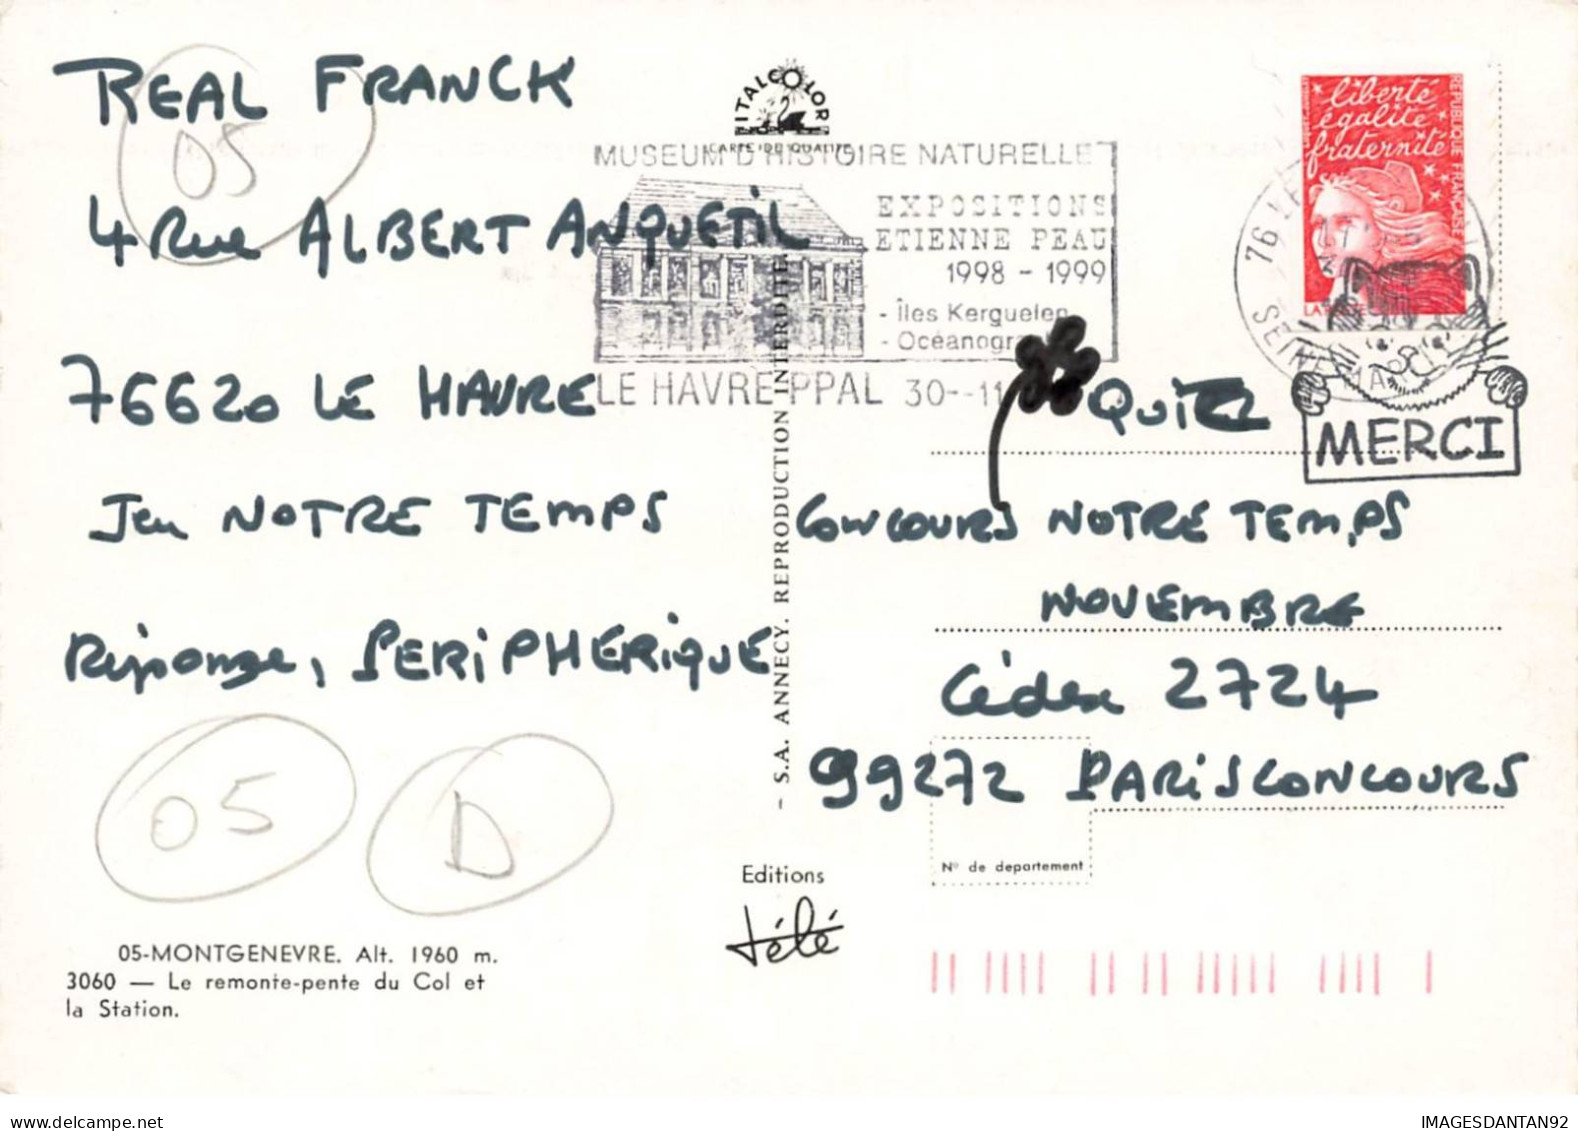 REAL FRANCK
05
4 Rue ALBERT ANQUETIL
76620 LE HAVRE
Jeu NOTRE TEMPS
Réponse, PERIPHERIQUE
05
D
05-MONTGENEVRE. Alt. 1960 m.
3060 — Le remonte-pente du Col et
la Station.
ITALCOLOR
CARTE DE QUALITE
MUSEUM D'HISTOIRE NATURELLE
EXPOSITIONS
ETIENNE PEAU
1998 - 1999
- Îles Kerguelen
- Océanogra
LE HAVRE PPAL 30--11
- S.A. ANNECY. REPRODUCTION INTERDITE
Editions
télé
liberté
égalité
fraternité
REPUBLIQUE FRANÇAISE
76 LE
SEINE MARI
MERCI
QUIZ
CONCOURS NOTRE TEMPS
NOVEMBRE
Cédex 2724
99272 PARISCONCOURS
N° de departement
IMAGESDANTAN92